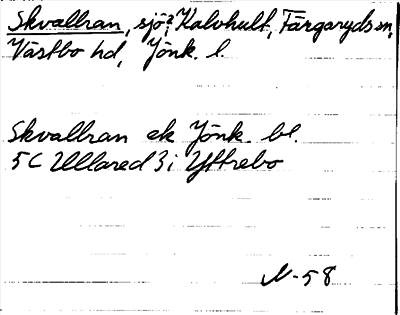 Skvallran, sjö? Kalvhult, Färgaryds sn,
Västbo hd, Jönk. l.
Skvallran ek Jönk. bl.
5C Ullared 3i Yttrebo
N-58